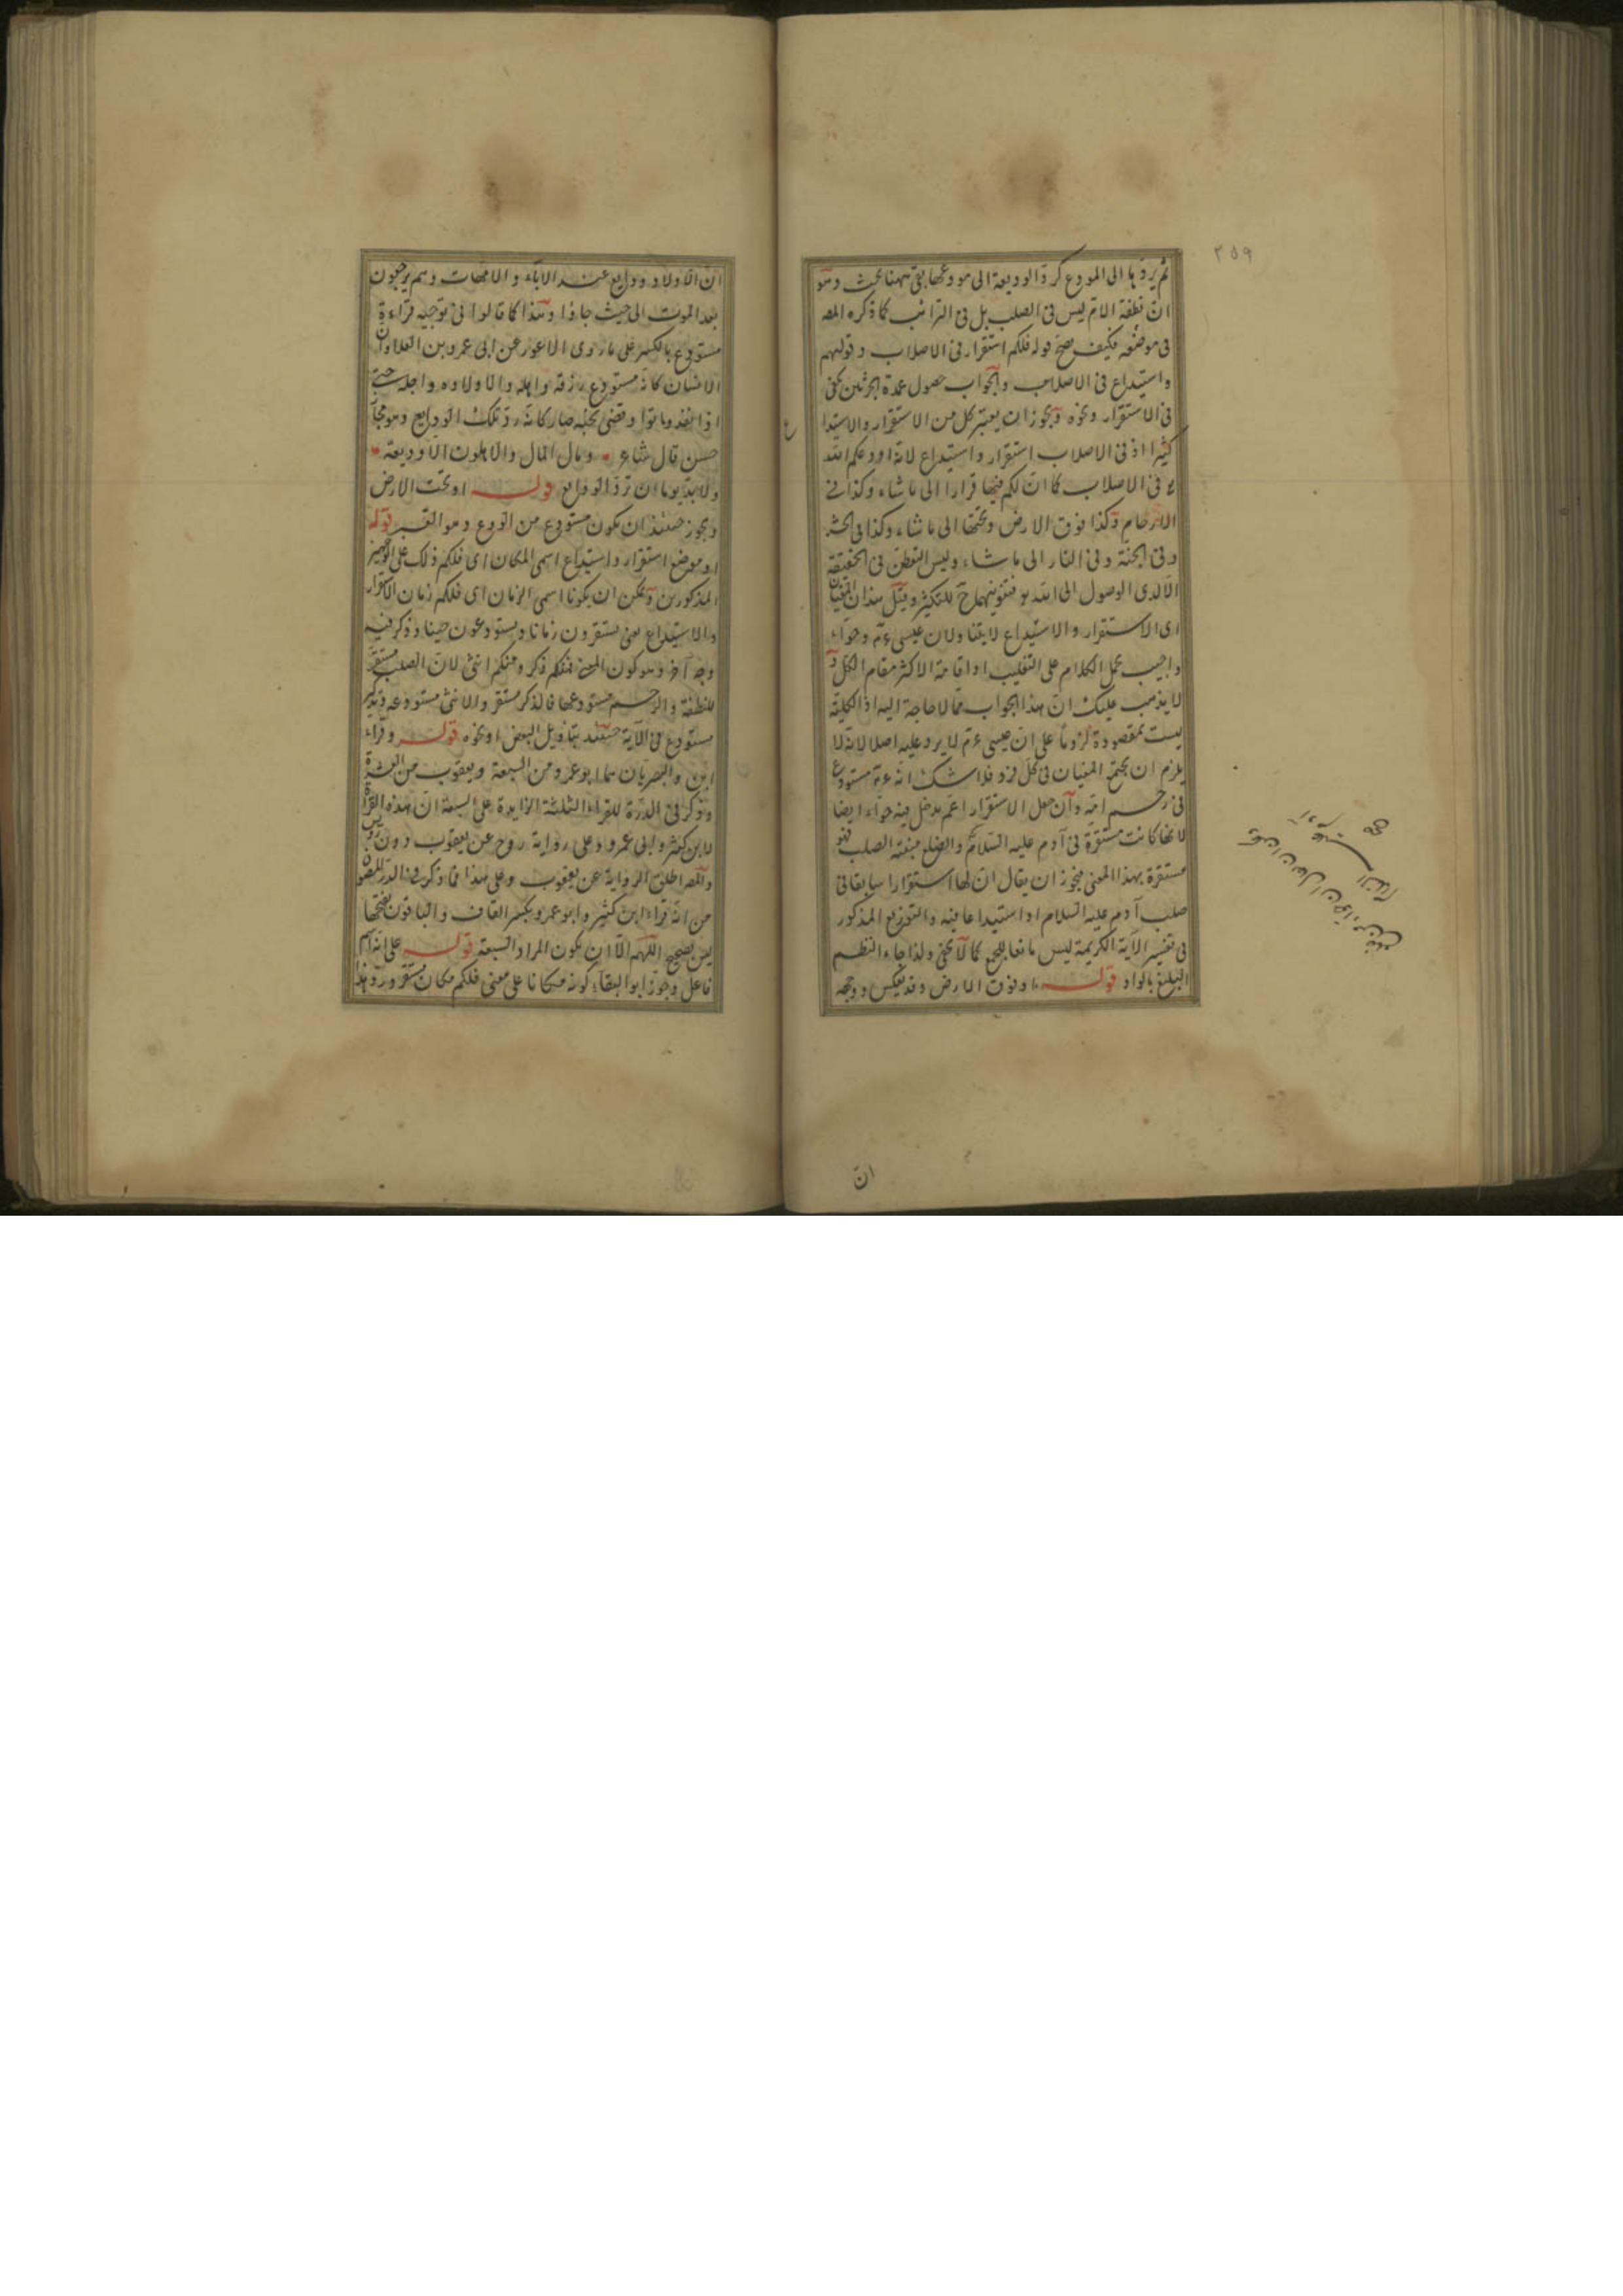 ٢٥٩
ثم يردها الى المودع كرد الوديعة الى مودعها بقى ههنا بحث وهو
ان نطفة الام ليس فى الصلب بل فى الترائب كما ذكره المص
فى موضعه فكيف صح قوله فلكم استقرار فى الاصلاب وقولهم
واستيداع فى الاصلاب والجواب حصول عمدة الجزئين كفى
فى الاستقرار ونحوه ويجوز ان يعتبر كل من الاستقرار والاستيدا
ع
كثيرا اذ فى الاصلاب استقرار واستيداع لانه اودعكم الله
فى الاصلاب كما ان لكم فيها قرارا الى ما شاء وكذا فى
الارحام وكذا فوق الارض وتحتها الى ما شاء وكذا فى الحشر
وفى الجنة وفى النار الى ما شاء وليس التقطن فى الحقيقة
الا لدى الوصول الى الله فتنوينهما ح للتكثير وقيل هذان المعنيان
اى الاستقرار والاستيداع لا يتناولان عيسى ءم وحواء
واجيب بحمل الكلام على التغليب او اقامة الاكثر مقام الكل و
لا يذهب عليك ان هذا الجواب مما لا حاجة اليه اذ الكلية
ليست بمقصودة لزوما على ان عيسى ءم لا يرد عليه اصلا لانه لا
يلزم ان يجتمع المعنيان فى كل فرد فلا شك انه ءم مستودع
فى رحم امه وان جعل الاستقرار اعم يدخل فيه حواء ايضا
لانها كانت مستقرة فى آدم عليه السلام والضلع منبته الصلب فهو
مستقرة بهذا المعنى فيجوز ان يقال ان لها استقرارا سابقا فى
صلب آدم عليه السلام او استيداعا فيه والتوزيع المذكور
فى تفسير الآية الكريمة ليس مانعا للجمع كما لا يخفى ولذا جاء النظم
البليغ بالواو قوله او فوق الارض وقد يعكس ووجه
ان
ان الاولاد ودايع عند الآباء والامهات وهم يرجعون
بعد الموت الى حيث جاؤا وهذا كما قالوا فى توجيه قراءة
مستودع بالكسر على ما روى الاعور عن ابى عمرو بن العلاء ان
الانسان كانه مستودع رزقه واهله والاولاده واجله حتى
اذا نفد وماتوا وقضى نحبه صار كانه رد تلك الودايع وهو مجاز
حسن قال شاعر وما المال والاهلون الا وديعة
ولا بد يوما ان ترد الودايع قوله او تحت الارض
ويجوز حينئذ ان يكون مستودع من الودع وهو القبر قوله
او موضع استقرار واستيداع اسمى المكان اى فلكم ذلك على الوجهين
المذكورين ويمكن ان يكونا اسمى الزمان اى فلكم زمان الاستقرار
والاستيداع يعنى تستقرون زمانا وتستودعون حينا وذكر فيه
وجه آخر وهو كون المعنى فمنكم ذكر ومنكم انثى لان الصلب مستقر
للنطفة والرحم مستودعها فالذكر مستقر والانثى مستودعه وتذكير
مستودع فى الآية حينئذ بتاويل البعض او نحوه قوله وقراء
ابن والبصريان هما ابو عمرو من السبعة ويعقوب من العشرة
وذكر فى الدرة للقراء الثلثة الزايدة على السبعة ان هذه القراءة
لابن كثير وابى عمرو وعلى رواية روح عن يعقوب دون رويس
والمص اطلق الرواية عن يعقوب وعلى هذا فما ذكر فى الدر المصون
من انه قراء ابن كثير وابو عمرو بكسر القاف والباقون بفتحها
ليس بصحيح اللهم الا ان يكون المراد السبعة قوله على انه اسم
فاعل وجوز ابو البقاء كونه مكانا على معنى فلكم مكان مستقر ورد هذا